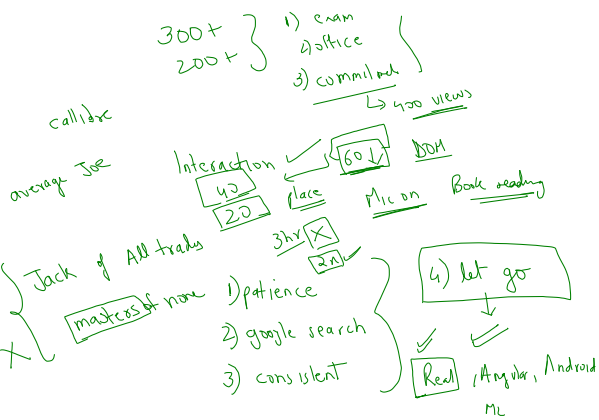 300+
200+
1) exam
2) office
3) commitment
→ 400 views
callibre
average Joe
Interaction
60 ↓
DOM
40
20
place
Mic on
Book reading
3hr X
2x
Jack of All trades
masters of none
X
1) patience
2) google search
3) consistent
4) let go
Real, Angular, Android
ML